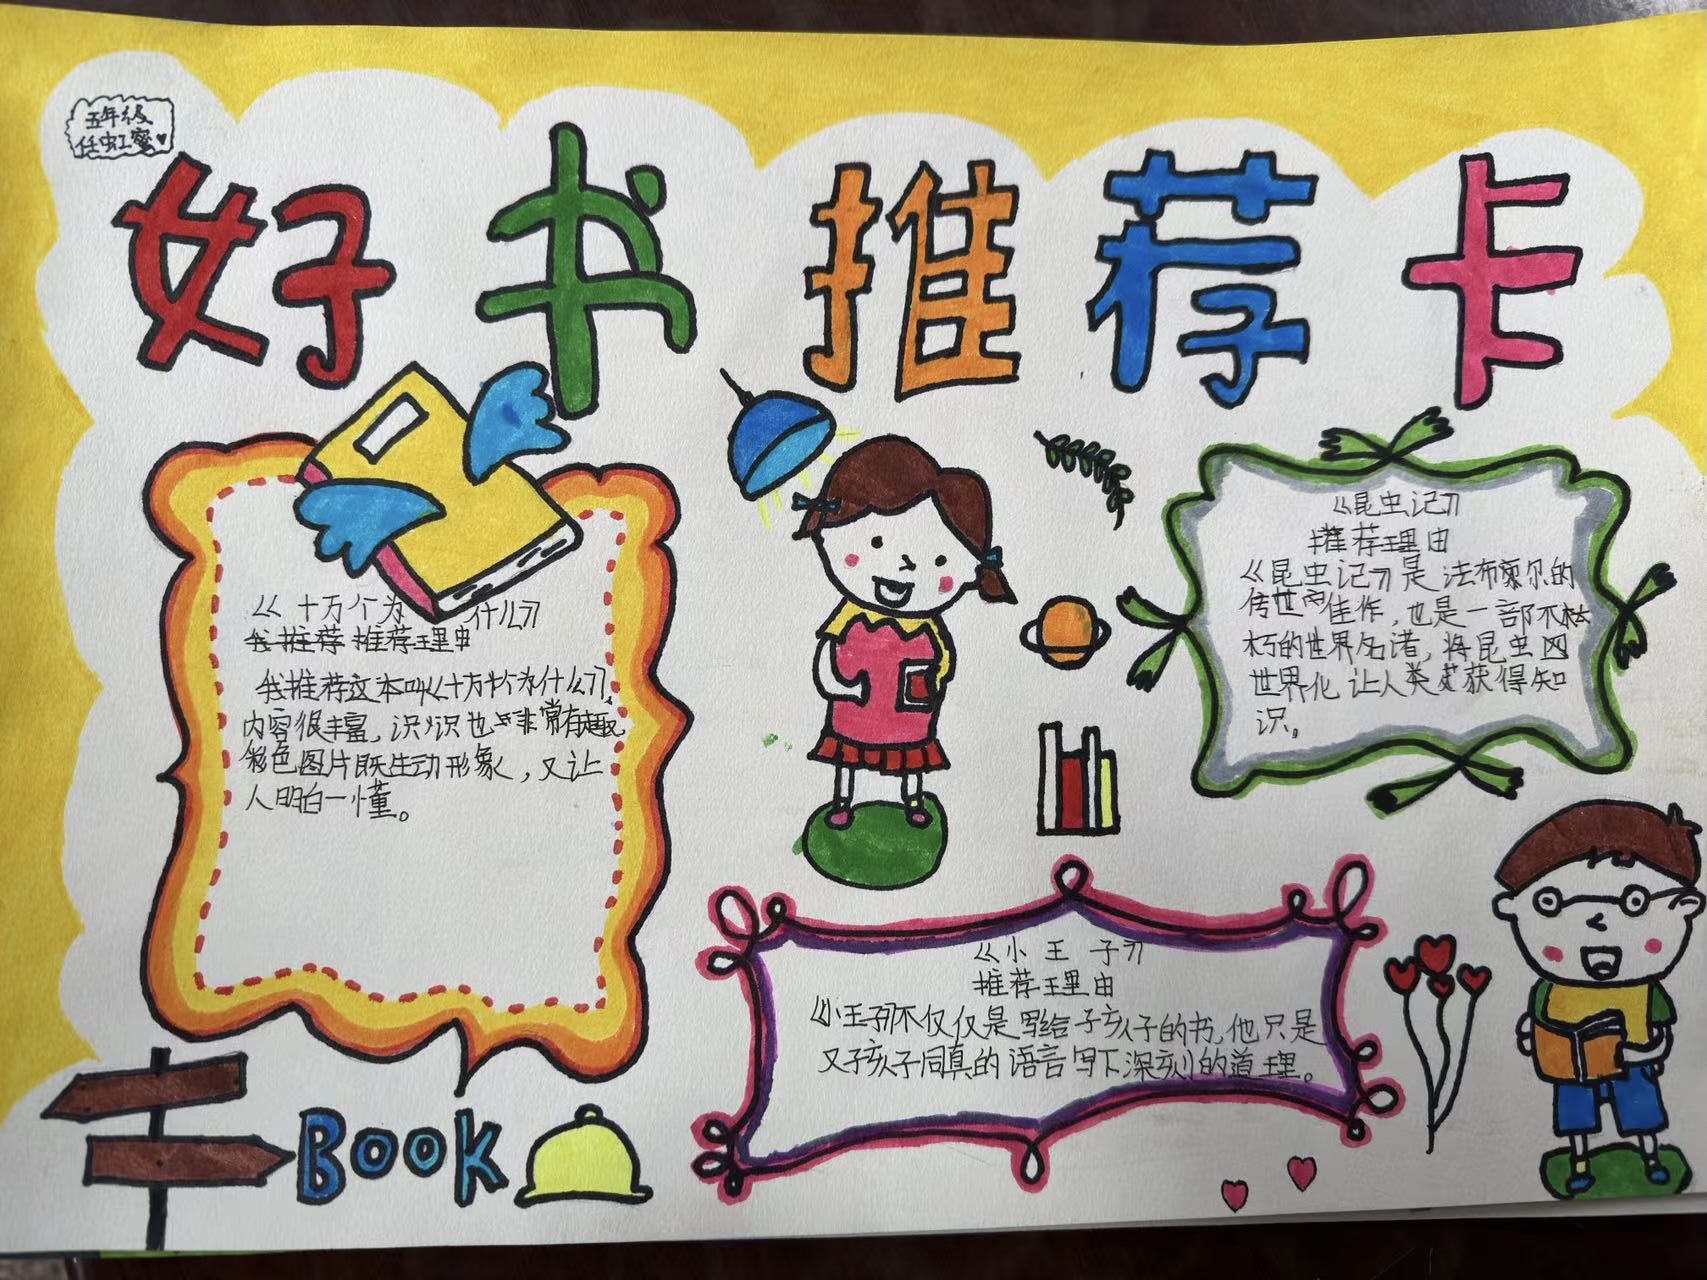 五年级
任虹蜜
好书推荐卡
《十万个为什么》
我推荐 推荐理由
我推荐这本叫《十万个为什么》,
内容很丰富,识识也非常有趣
彩色图片既生动形象,又让
人明白一懂。
《昆虫记》
推荐理由
《昆虫记》是法布尔的
传世佳作,也是一部不
朽的世界名诸,将昆虫
世界化让人类获得知
识。
《小王子》
推荐理由
《小王子》不仅仅是写给子孩子的书,他只是
又子孩子同真的语言写下深刻的道理。
BOOK